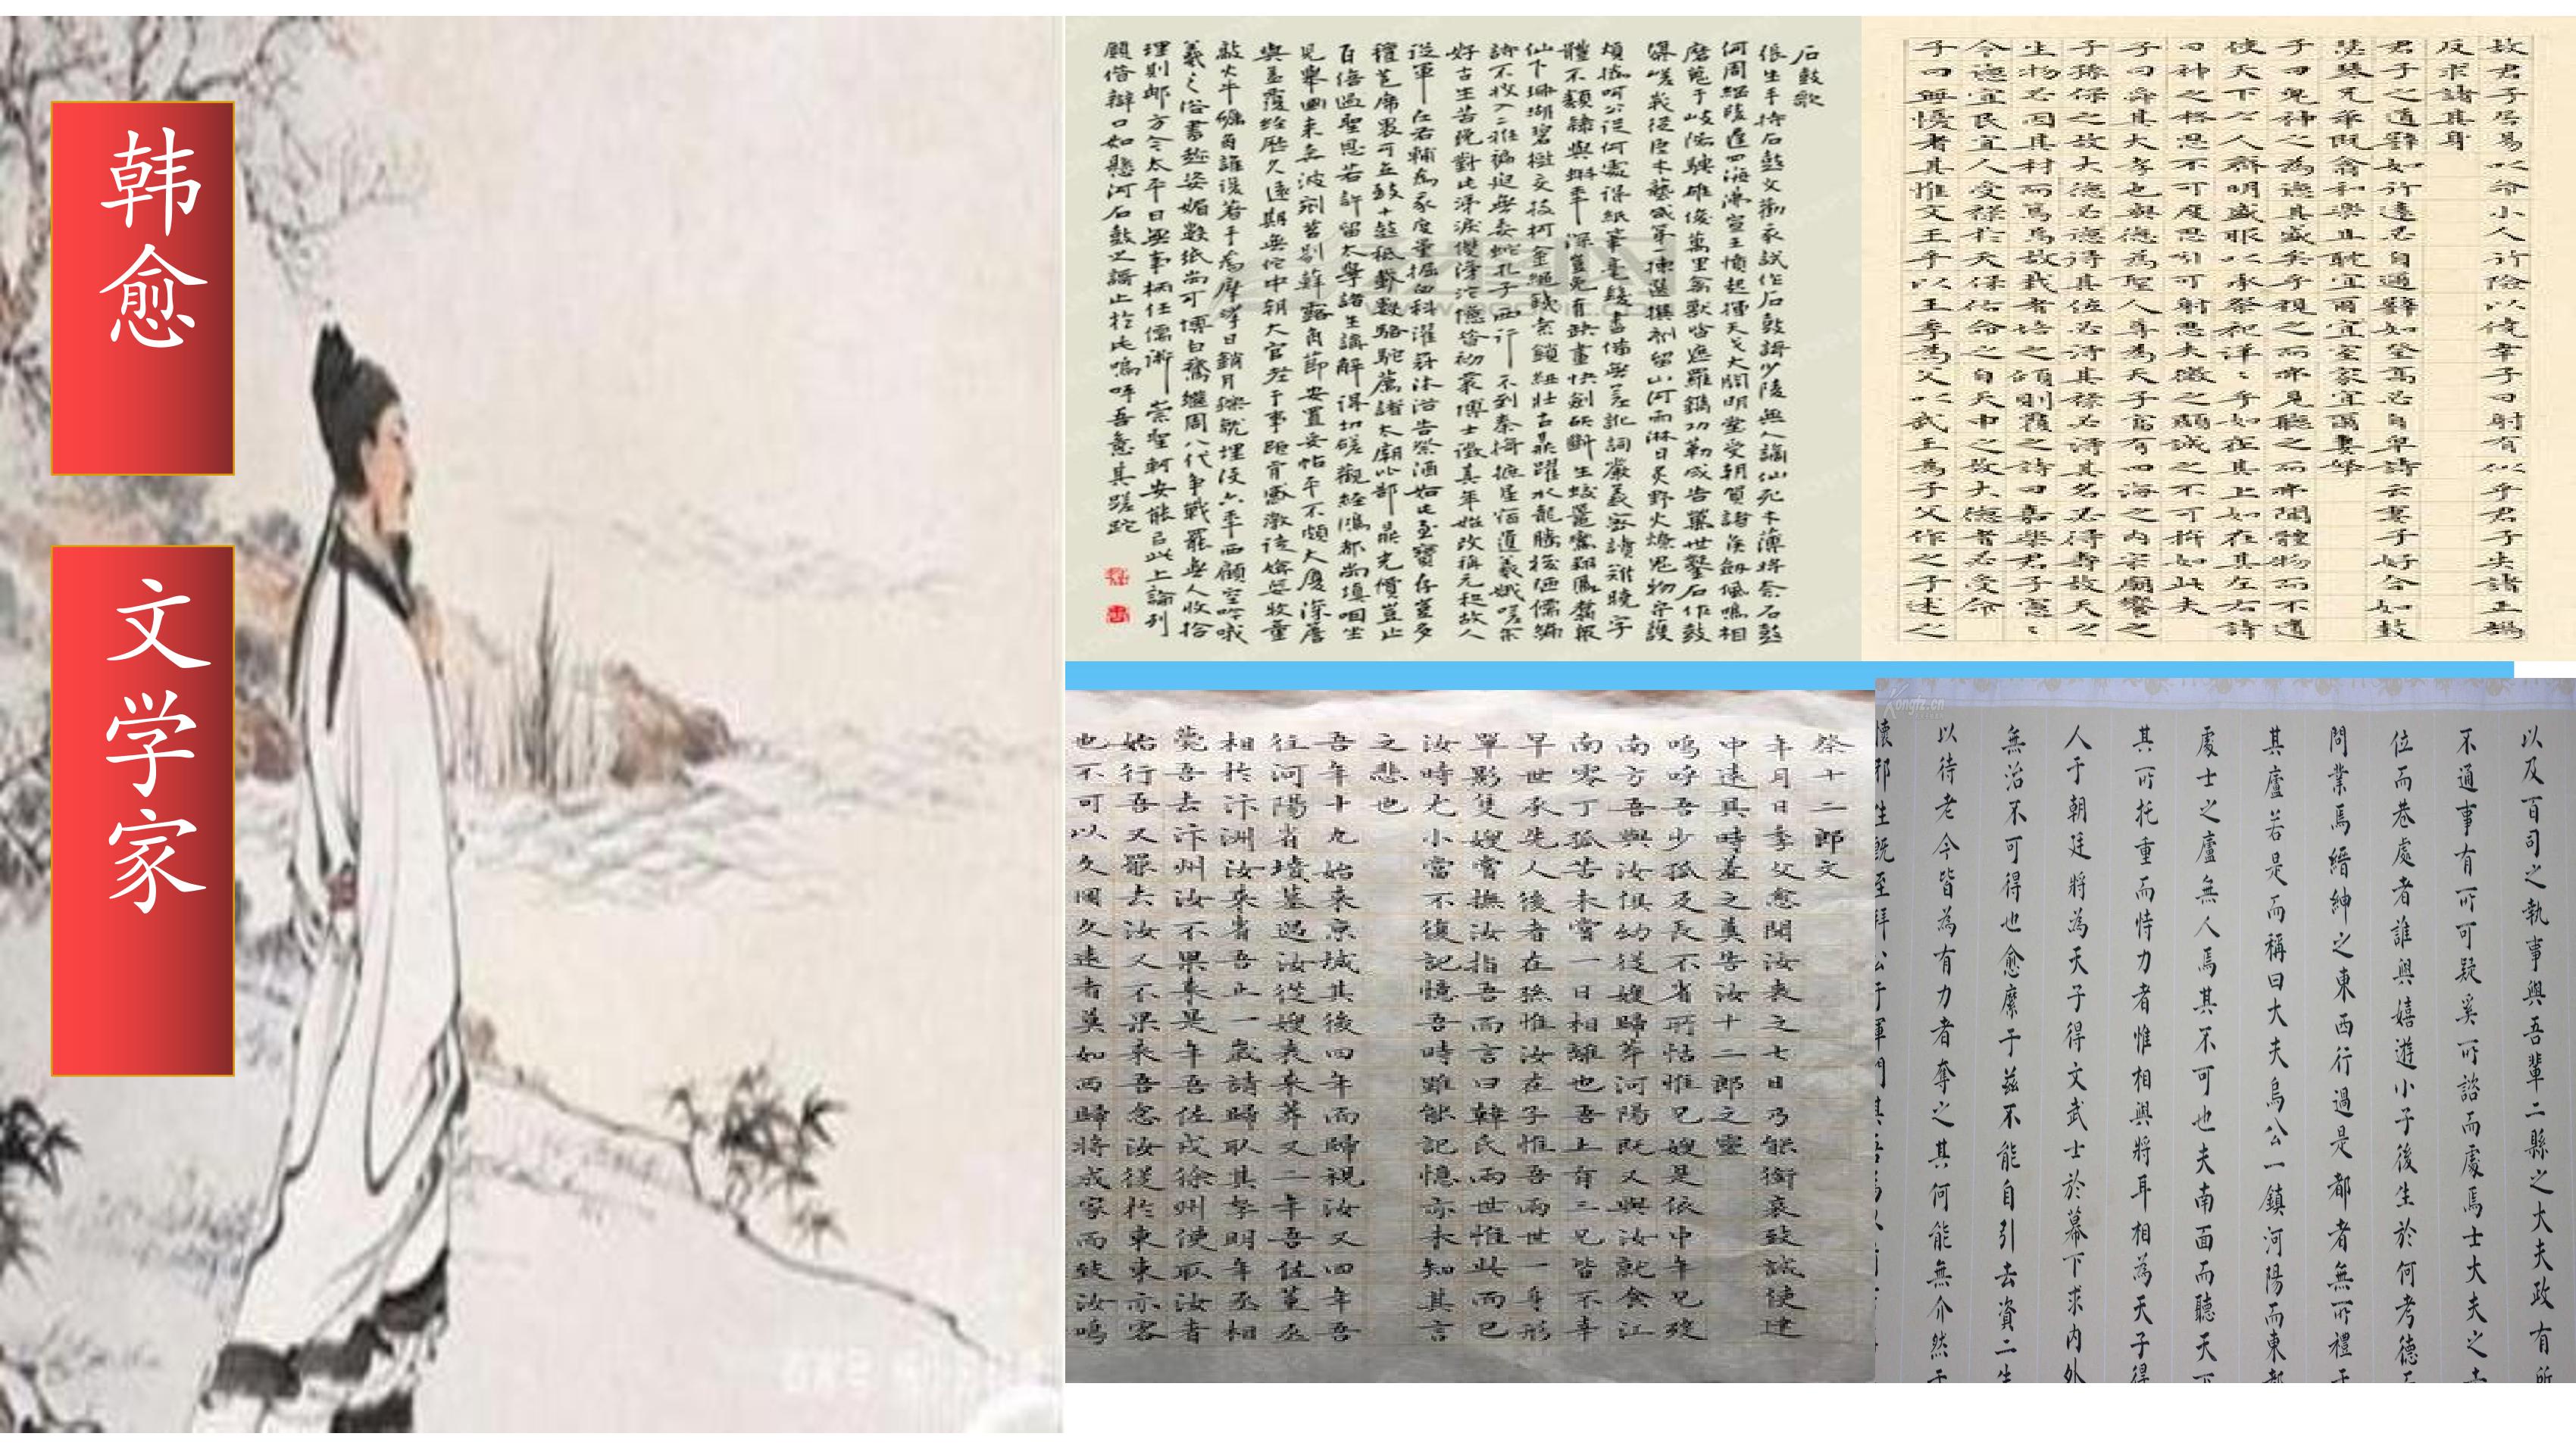 韩愈
文学家
石鼓歌
張生手持石鼓文勸我試作石鼓謌少陵無人謫仙死才薄將奈石鼓
何周綱陵遲四海沸宣王憤起揮天戈大開明堂受朝賀諸侯劍佩鳴相
磨蒐于岐陽騁雄俊萬里禽獸皆遮羅鐫功勒成告萬世鑿石作鼓
隳嵯峨從臣才藝咸第一揀選撰刻留山河雨淋日炙野火燎鬼物守護
煩撝呵公從何處得紙本毫髮盡備無差訛詞嚴義密讀難曉字
體不類隸與蝌年深豈免有缺畫快劍斫斷生蛟鼉鸞翔鳳翥衆
仙下珊瑚碧樹交枝柯金繩鐵索鎖紐壯古鼎躍水龍騰梭陋儒編
詩不收入二雅褊迫無委蛇孔子西行不到秦掎摭星宿遺羲娥嗟余
好古生苦晚對此涕淚雙滂沱憶昔初蒙博士徵其年始改稱元和故人
從軍在右輔為我度量掘臼科濯冠沐浴告祭酒如此至寶存豈多
氈苞席裹可立致十鼓祇載數駱駝薦諸太廟比郜鼎光價豈止
百倍過聖恩若許留太學諸生講解得切磋觀經鴻都尚填咽坐
見舉國來奔波剜苔剔蘚露角節安置妥帖平不頗大廈深簷
與蓋覆經歷久遠期無佗中朝大官老于事詎肯感激徒媕婀牧童
敲火牛礪角誰復著手為摩挲日銷月鑠就埋沒六年西顧空吟哦
羲之俗書趁姿媚數紙尚可博白鵝繼周八代爭戰罷無人收拾
理則那方今太平日無事柄任儒術崇聖軻安能以此上論列
願借辯口如懸河石鼓之謌止於此嗚呼吾意其蹉跎
故君子居易以俟命小人行險以僥幸子曰射有似乎君子失諸正鵠
反求諸其身
君子之道辟如行遠必自邇辟如登高必自卑詩云妻子好合如鼓
瑟琴兄弟既翕和樂且耽宜爾室家宜爾妻帑
子曰鬼神之為德其盛矣乎視之而弗見聽之而弗聞體物而不遺
使天下之人齊明盛服以承祭祀洋洋乎如在其上如在其左右詩
曰神之格思不可度思矧可射思夫微之顯誠之不可揜如此夫
子曰舜其大孝也與德為聖人尊為天子富有四海之內宗廟饗之
子孫保之故大德必得其位必得其祿必得其名必得其壽故天之
生物必因其材而篤焉故栽者培之傾則覆之詩曰嘉樂君子憲憲
令德宜民宜人受祿於天保佑命之自天申之故大德者必受命
子曰無憂者其惟文王乎以王季為父以武王為子父作之子述之
祭十二郎文
年月日季父愈聞汝喪之七日乃能銜哀致誠使建
中遠具時羞之奠告汝十二郎之靈
嗚呼吾少孤及長不省所怙惟兄嫂是依中年兄歿
南方吾與汝俱幼從嫂歸葬河陽既又與汝就食江
南零丁孤苦未嘗一日相離也吾上有三兄皆不幸
早世承先人後者在孫惟汝在子惟吾兩世一身形
單影隻嫂嘗撫汝指吾而言曰韓氏兩世惟此而已
汝時尤小當不復記憶吾時雖能記憶亦未知其言
之悲也
吾年十九始來京城其後四年而歸視汝又四年吾
往河陽省墳墓遇汝從嫂喪來葬又二年吾佐董丞
相於汴洲汝來省吾止一歲請歸取其孥明年丞相
薨吾去汴州汝不果來是年吾佐戎徐州使取汝者
始行吾又罷去汝又不果來吾念汝從於東東亦客
也不可以久圖久遠者莫如西歸將成家而致汝嗚
以及百司之執事與吾輩二縣之大夫政有所
不通事有所可疑奚所諮而處焉士大夫之去
位而巷處者誰與嬉遊小子後生於何考德而
問業焉縉紳之東西行過是都者無所禮于
其廬若是而稱曰大夫烏公一鎮河陽而東都
處士之廬無人焉其不可也夫南面而聽天下
其所托重而恃力者惟相與將耳相為天子得
人于朝廷將為天子得文武士於幕下求內外
無治不可得也愈縻于茲不能自引去資二生
以待老今皆為有力者奪之其何能無介然于
懷邪生既至拜公于軍門其
kongfz.cn